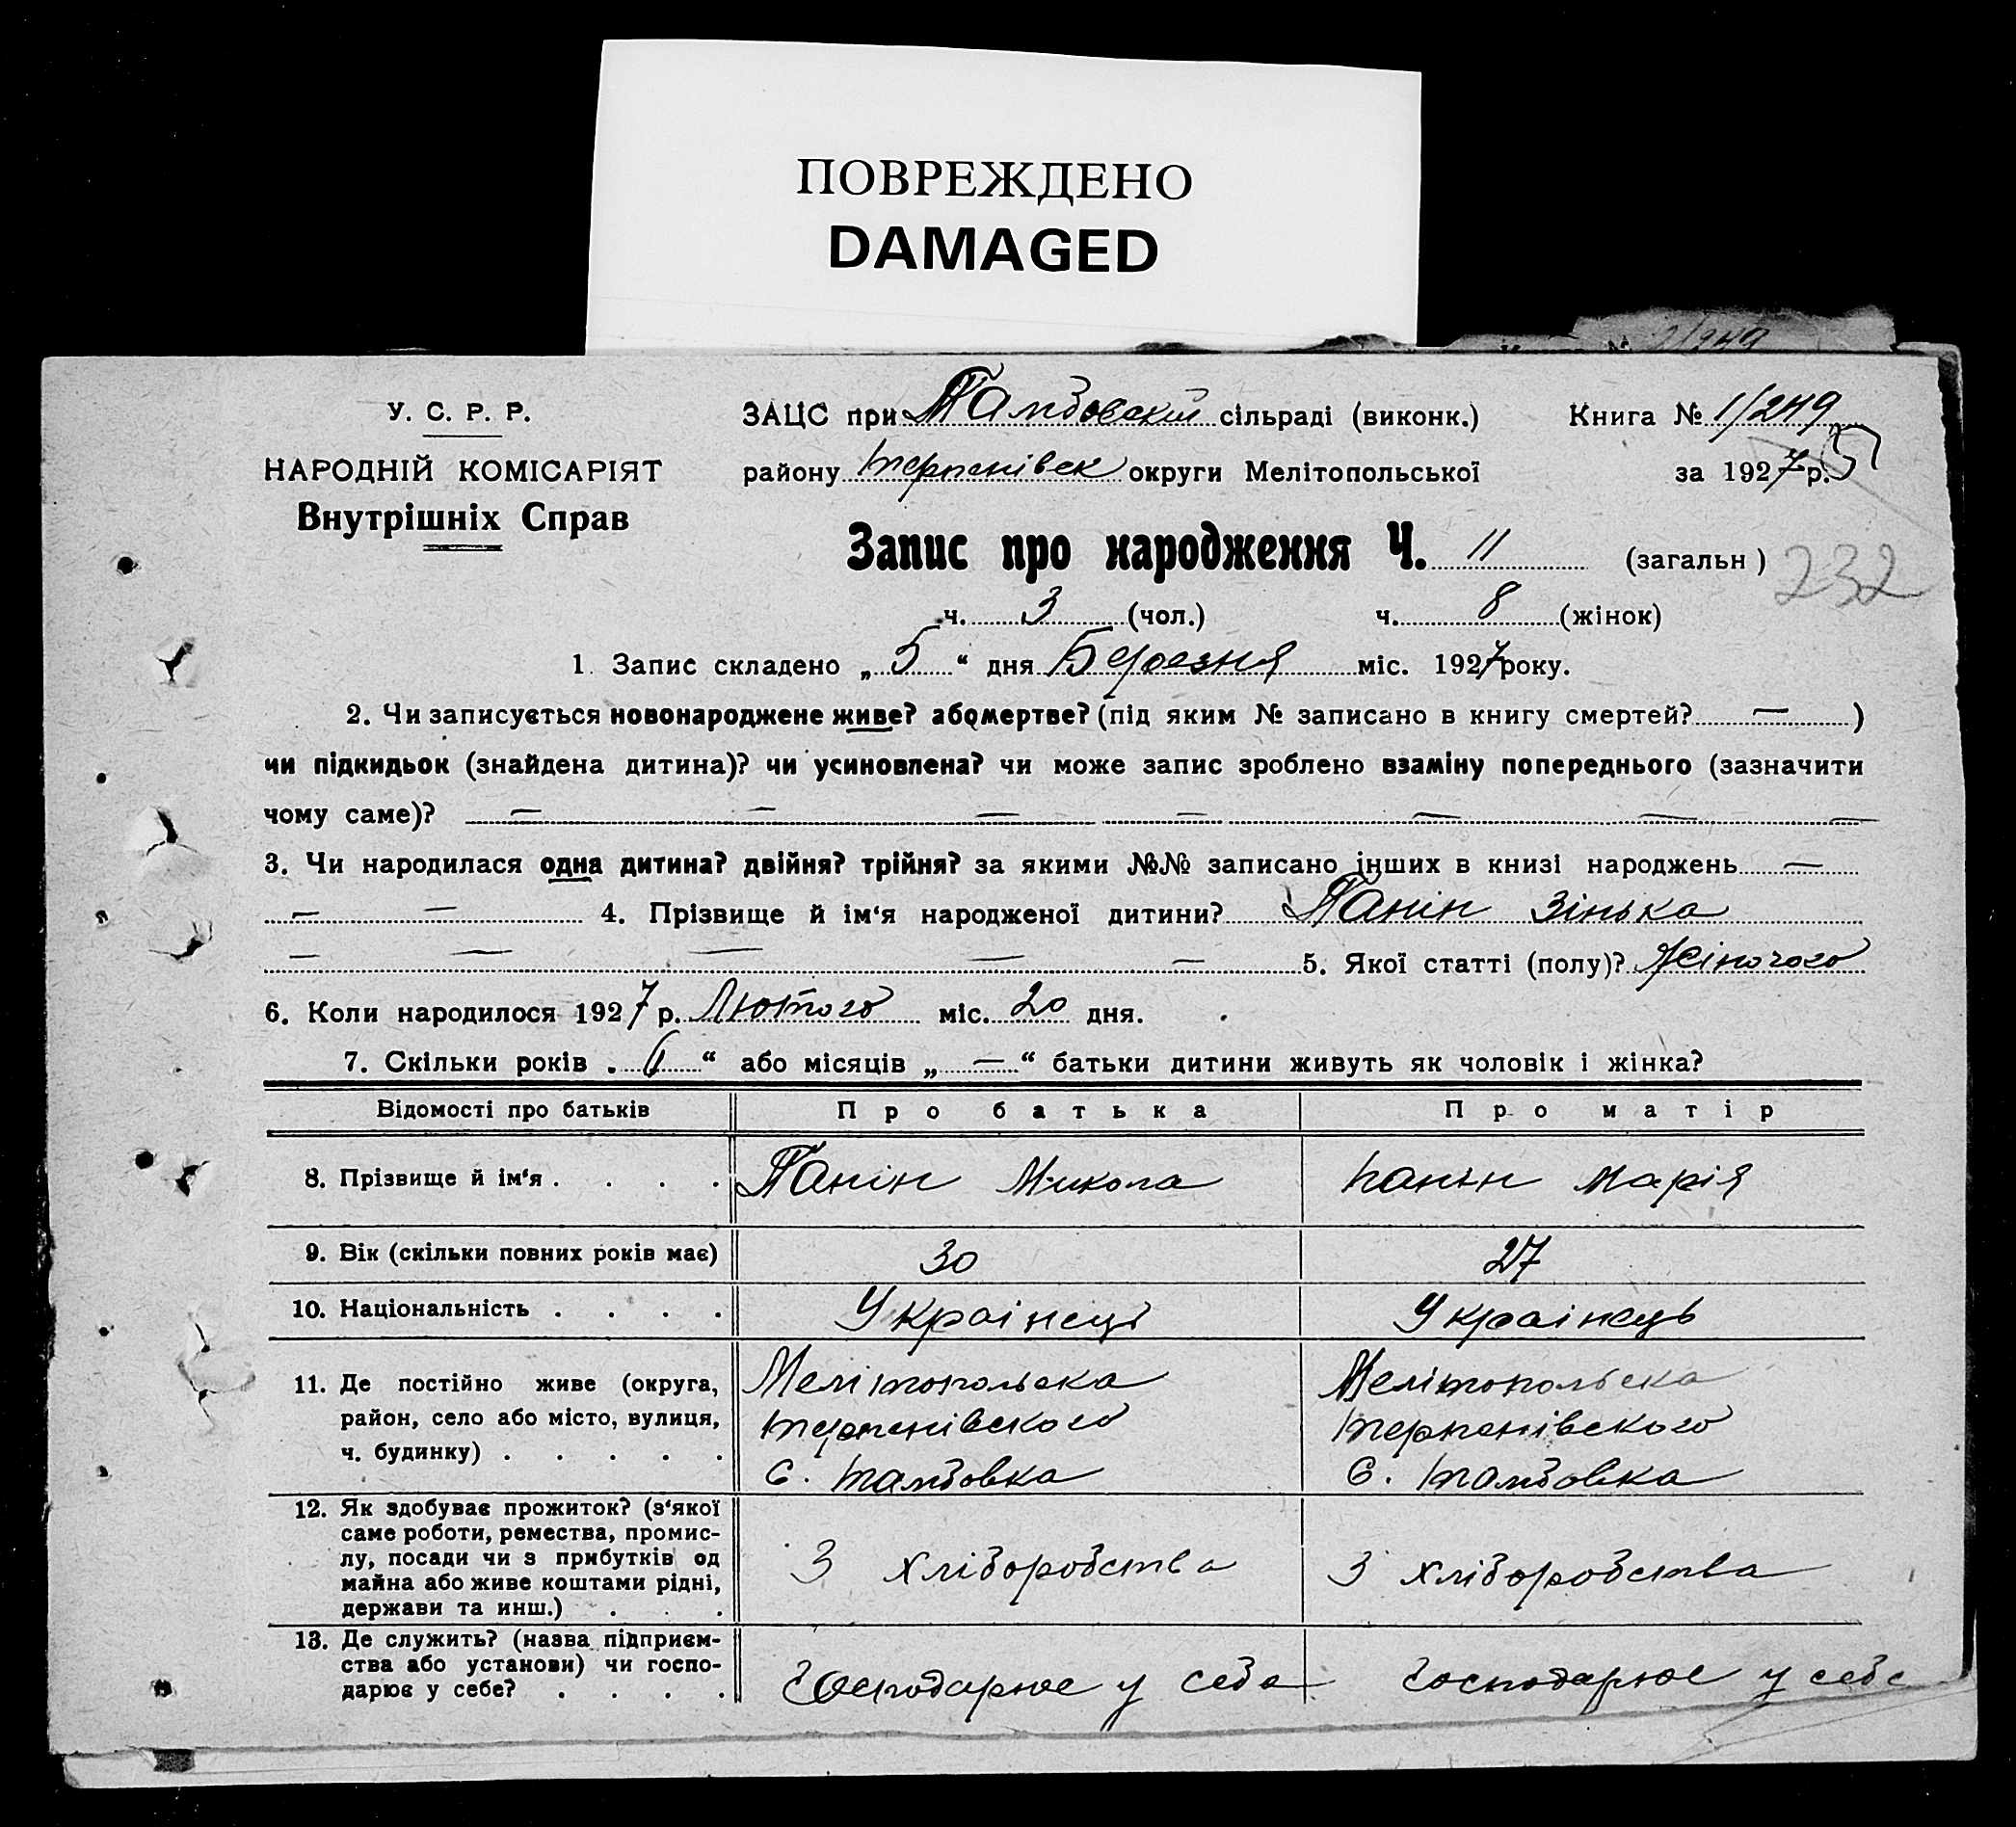 ПОВРЕЖДЕНО
DAMAGED
У. С. Р. Р.
НАРОДНІЙ КОМІСАРІЯТ
Внутрішніх Справ
ЗАЦС при Тамбовскій сільраді (виконк.) Книга № 1/249
району терпенівск округи Мелітопольської за 1927 р.
Запис про народження Ч. 11 (загальн)
232
ч. 3 (чол.) ч. 8 (жінок)
1. Запис складено „ 5 “ дня Березня міс. 1927 року.
2. Чи записується новонароджене живе? або мертве? (під яким № записано в книгу смертей? — )
чи підкидьок (знайдена дитина)? чи усиновлена? чи може запис зроблено взаміну попереднього (зазначити
чому саме)? — — — — — — —
3. Чи народилася одна дитина? двійня? трійня? за якими №№ записано інших в книзі народжень —
— — 4. Прізвище й ім‘я народженої дитини? Панін Зінька
— — — — — 5. Якої статті (полу)? Жіночого
6. Коли народилося 1927 р. Лютого міс. 20 дня.
7. Скільки років „ 6 “ або місяців „ — “ батьки дитини живуть як чоловік і жінка?
Відомості про батьків Про батька Про матір
8. Прізвище й ім‘я . . . . Панін Микола Панін Марія
9. Вік (скільки повних років має) 30 27
10. Національність . . . . Украінець Украінець
11. Де постійно живе (округа,
район, село або місто, вулиця,
ч. будинку) . . . . .
Мелітопольска
терпенівского
С. тамбовка
Мелітопольска
терпенівского
С. тамбовка
12. Як здобуває прожиток? (з‘якої
саме роботи, ремества, промис-
лу, посади чи з прибутків од
майна або живе коштами рідні,
держави та инш.) . . .
З хліборобства
З хліборобства
13. Де служить? (назва підприєм-
ства або установи) чи госпо-
дарює у себе? . . . .
Господарює у себе
Господарює у себе